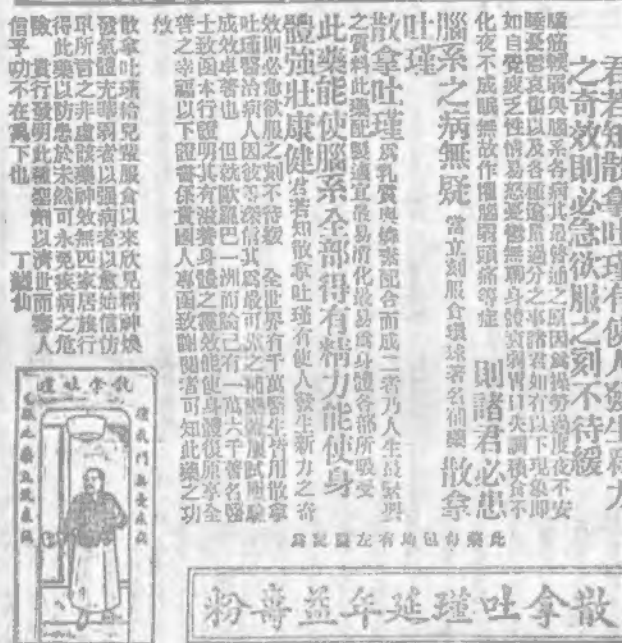 君若知散拿吐瑾有使人發生新力
之奇效則必急欲服之刻不待緩
腦筋衰弱與腦系各病其最普通之原因爲操勞過度夜不安
睡憂鬱哀傷以及各種逾乎過分之事諸君如有以下現象即
如自覺疲乏性情易怒憂鬱無聊身體衰弱胃口失調積食不
化夜不成眠無故作惱腦弱頭痛等症 則諸君必患
腦系之病無疑 當立刻服食環球著名補藥 散拿
吐瑾
散拿吐瑾 爲乳質與燐素配合而成二者乃人生最緊要
之資料此藥配製適宜最易消化最易爲身體各部所吸受
此藥能使腦系全部得有精力能使身
體強壯康健 君若知散拿吐瑾有使人發生新力之奇
效則必急欲服之刻不待緩 全世界有千萬醫生皆用散拿
吐瑾醫治病人因彼等深信其爲最可靠之補藥若服試無驗
成效卓著也 但就歐羅巴一洲而論已有一萬六千著名醫
士致函本行證明其有滋養身體之靈效能使身體復原享全
善之幸福以下證書係貴國人專函致謝閱者可知此藥之功
效
散拿吐瑾給兒輩服食以來欣見精神煥
發氣體充華弱者以强病者以愈始信仿
單所言之非虛該藥神效無匹家居旅行
得此藥以防患於未然可永免疾病之危
險 貴行發明此種聖劑以濟世而響人
信乎功不在禹下也 丁鶴仙
此藥每包均有左圖記爲
散拿吐瑾
散拿吐瑾延年益壽粉